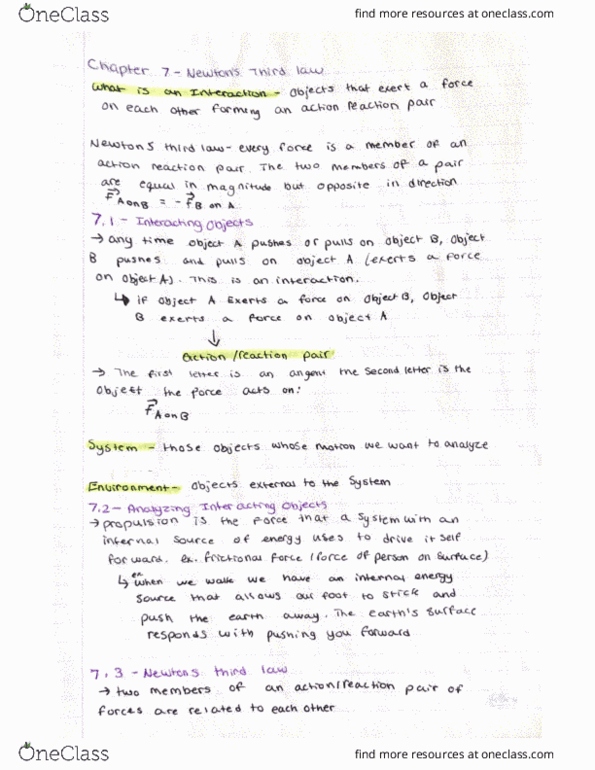 OneClass
find more resources at oneclass.com
Chapter 7 - Newtons Third law
What is an Interaction - Objects that exert a force
on each other forming an action reaction pair
Newtons third law - every force is a member of an
action reaction pair. The two members of a pair
are equal in magnitude but opposite in direction
F⃗ A on B = - F⃗ B on A
7.1 - Interacting Objects
→ any time object A pushes or pulls on object B, Object
B pushes and pulls on object A (exerts a force
on object A). This is an interaction.
↳ if object A Exerts a force on object B, Object
B exerts a force on object A
↓
action/reaction pair
→ The first letter is an angent the second letter is the
object the force acts on:
F⃗ A on B
System - those objects whose motion we want to analyze
Environment - objects external to the System
7.2 - Analyzing Interacting Objects
→ propulsion is the force that a system with an
internal source of energy uses to drive it self
forward. ex. frictional force (force of person on surface)
↳ ex. when we walk we have an internal energy
source that allows our foot to stick and
push the earth away. The earth's surface
responds with pushing you forward
7.3 - Newtons third law
→ two members of an action/reaction pair of
forces are related to each other
OneClass
find more resources at oneclass.com